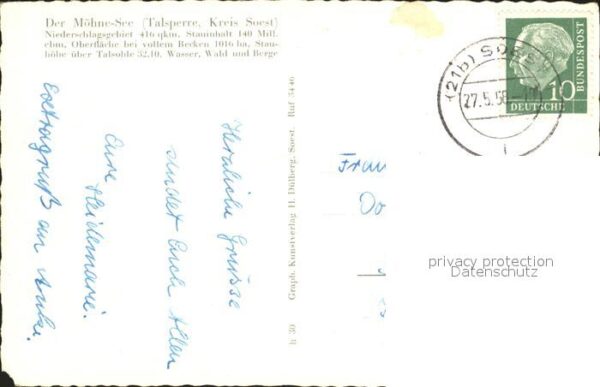 Der Möhne-See (Talsperre, Kreis Soest)
Niederschlagsgebiet 416 qkm, Stauinhalt 140 Mill.
cbm, Oberfläche bei vollem Becken 1016 ha, Stau-
höhe über Talsohle 32,10, Wasser, Wald und Berge
Herzliche Grüsse
sendet Euch Allen
Eure
Heidemarie.
Extragruß an Anke.
h 30 Graph. Kunstverlag H. Dülberg, Soest. Ruf 3446
(21b) SOEST
27.5.56
10
DEUTSCHE
BUNDESPOST
privacy protection
Datenschutz